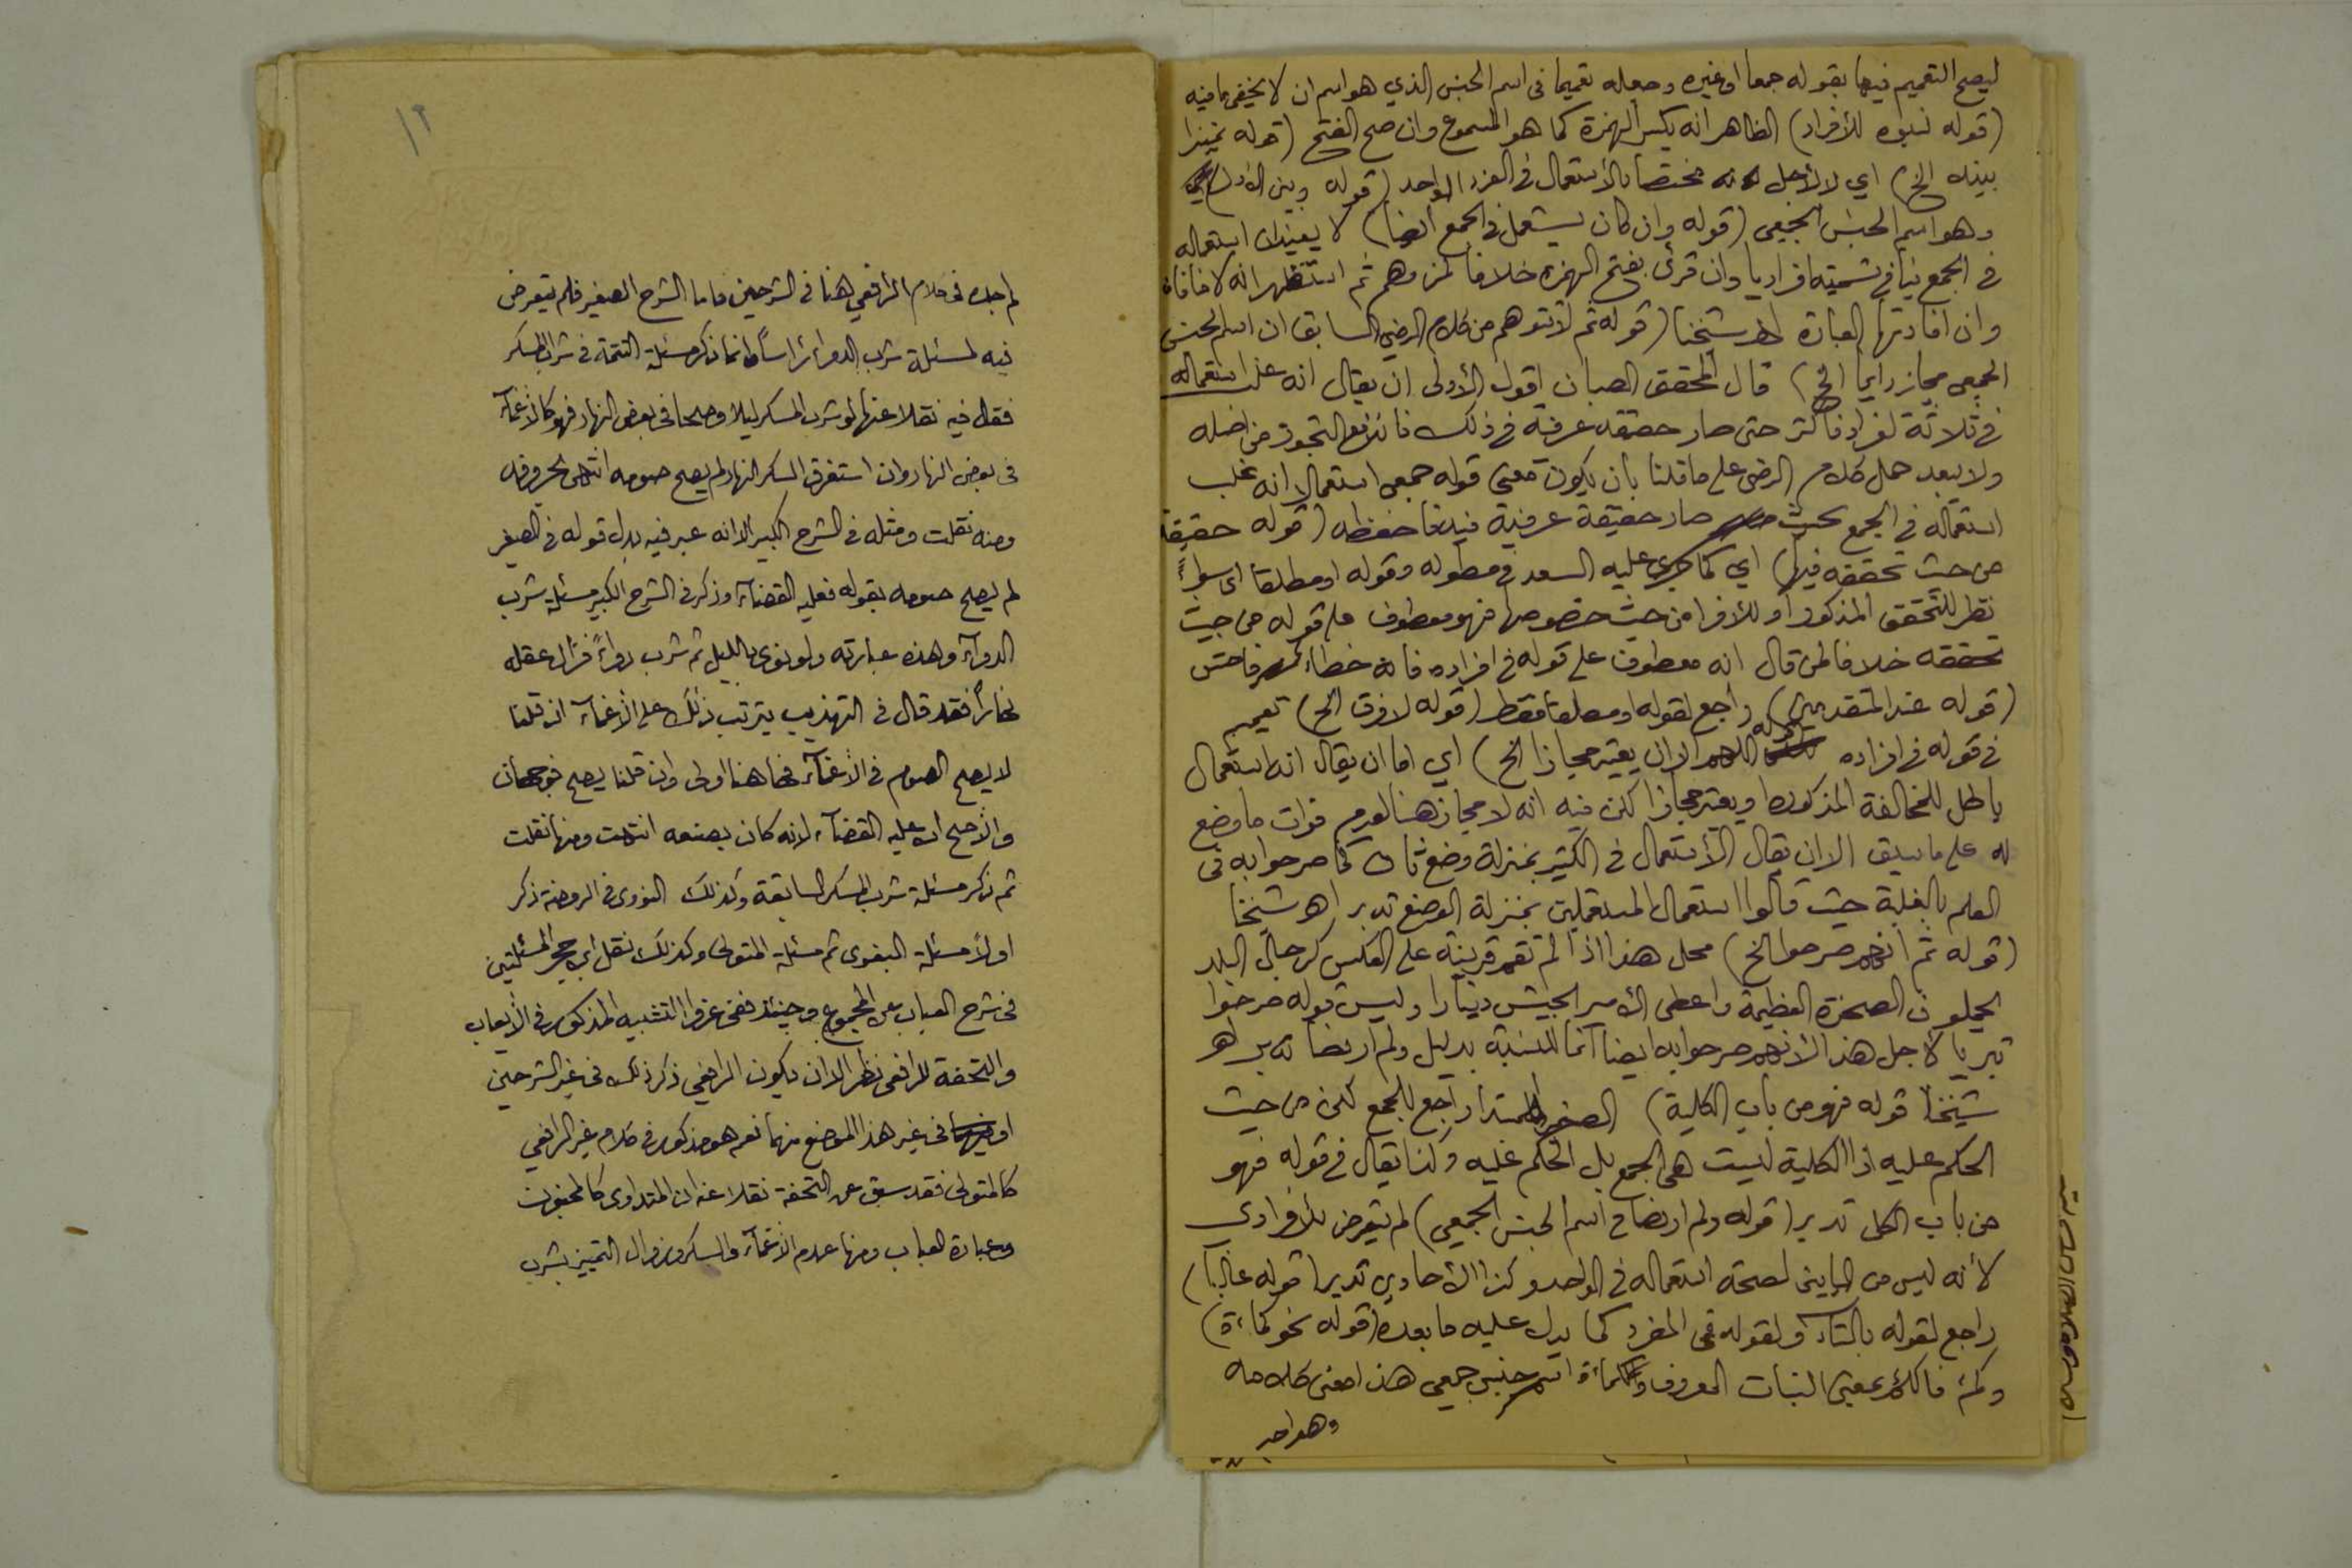 ليصح التعميم فيها بقوله جمعا او غيره وجعله تعميما في اسم الجنس الذي هو اسم ان لا يخفى ما فيه
(قوله للأفراد) الظاهر انه بكسر الهمزة كما هو المسموع وان صح الفتح (قوله تمييزا
بينه الخ) اي لا لأجل انه مختصا بالأستعمال في الفرد الواحد (قوله وبين الأول)
وهو اسم الجنس الجمعي (قوله وان كان يستعمل في الجمع ايضا) لا يفيد ان استعماله
في الجمع ينافي تسميته افراديا وان قرئ بفتح الهمزة خلافا لمن وهم ثم استظهر انه لا منافاة
وان افادتها العبارة اهـ شيخنا (قوله ثم لا تتوهم من كلام الرضي السابق ان اسم الجنس
الجمعي مجاز دايما الخ) قال المحقق الصبان اقول الأولى ان يقال انه غلب استعماله
في ثلاثة افراد فاكثر حتى صار حقيقة عرفية في ذلك فاندفع التجوز من اصله
ولا يبعد حمل كلام الرضى على ما قلنا بان يكون معنى قوله جمعي استعمالا انه غلب
استعماله في الجمع بحيث صار حقيقة عرفية فيه فاحفظه (قوله حقيقة
من حيث تحققه فيها) اي كما جرى عليه السعد في مطوله وقوله او مطلقا اى سواءً
نظر للتحقق المذكور او للأفراد من حيث خصوصها فهو معطوف على قوله من حيث
تحققه خلافا لمن قال انه معطوف على قوله في افراده فانه خطاء فاحش
(قوله عند المتقدمين) راجع لقوله او مطلقا فقط (قوله لا فرق الخ) تعميم
في قوله في افراده قوله اللهم الا ان يعتبر مجازا الخ) اي اما ان يقال انه استعمال
باطل للمخالفة المذكورة او يعتبر مجازا لكن فيه انه لا مجاز هنا لعدم فوات ما وضع
له على ما سبق الا ان يقال الأستعمال في الكثير بمنزلة وضع ثان كما صرحوا به في
العلم بالغلبة حيث قالوا استعمال المستعملين بمنزلة الوضع تدبر اهـ شيخنا
(قوله ثم انهم صرحوا الخ) محل هذا اذا لم تقم قرينة على العكس كرجال البلد
يحملون الصخرة العظيمة واعطى الأمير الجيش دينارا وليس قوله صرحوا
تبريا لأجل هذا لأنهم صرحوا به ايضا انما للنسبة بدليل ولم ار ايضا تدبر اهـ
شيخنا قوله فهو من باب الكلية) الضمير المبتدا راجع للجمع لكن من حيث
الحكم عليه اذ الكلية ليست هي الجمع بل الحكم عليه وكذا يقال في قوله فهو
من باب الكل تدبر (قوله ولم ار ايضا في اسم الجنس الجمعي) لم يتعرض للأفرادي
لأنه ليس من البابين لصحة استعماله في الواحد وكذا الأحادي تدبر (قوله غالبا)
راجع لقوله بالتاء ولقوله في المفرد كما يدل عليه ما بعده (قوله نحو كماءة)
وكمء فالكمء بمعنى النبات المعروف والكماءة اسم جنس جمعي هذا معنى كلامه
وهو احد
١٢
لم اجده في كلام الرافعي هنا في الشرحين فاما الشرح الصغير فلم يتعرض
فيه لمسئلة شرب الدواء راساً وانما ذكر مسئلة التتمة في شرب المسكر
فقال فيه نقلا عنها لو شرب المسكر ليلا وصحا في بعض النهار فهو كالأغماء
في بعض النهار وان استغرق السكر النهار لم يصح صومه انتهى بحروفه
ومنه نقلت ومثله في الشرح الكبير الا انه عبر فيه بدل قوله في الصغير
لم يصح صومه بقوله فعليه القضاء وذكر في الشرح الكبير مسئلة شرب
الدواء وهذه عبارته ولو نوى بالليل ثم شرب دواءً فزال عقله
نهاراً فقد قال في التهذيب يترتب ذلك على الأغماء ان قلنا
لا يصح الصوم في الأغماء فهاهنا اولى وان قلنا يصح فوجهان
والأصح ان عليه القضاء لأنه كان بصنعه انتهت ومنها نقلت
ثم ذكر مسئلة شرب المسكر السابقة وكذلك النووى في الروضة ذكر
اولاً مسئلة البغوى ثم مسئلة المتولى وكذلك نقل ابن حجر المسئلتين
في شرح العباب عن المجموع وحينئذ ففي عزو التشبيه المذكور في الأيعاب
والتحفة للرافعي نظر الا ان يكون الرافعي ذكر ذلك في غير الشرحين
او فيهما في غير هذا الموضع منهما نعم هو مذكور في كلام غير الرافعي
كالمتولى فقد سبق عن التحفة نقلا عنه ان المتداوى كالمجنون
وعبارة العباب ومنها عدم الأغماء والسكر وزوال التمييز بشرب